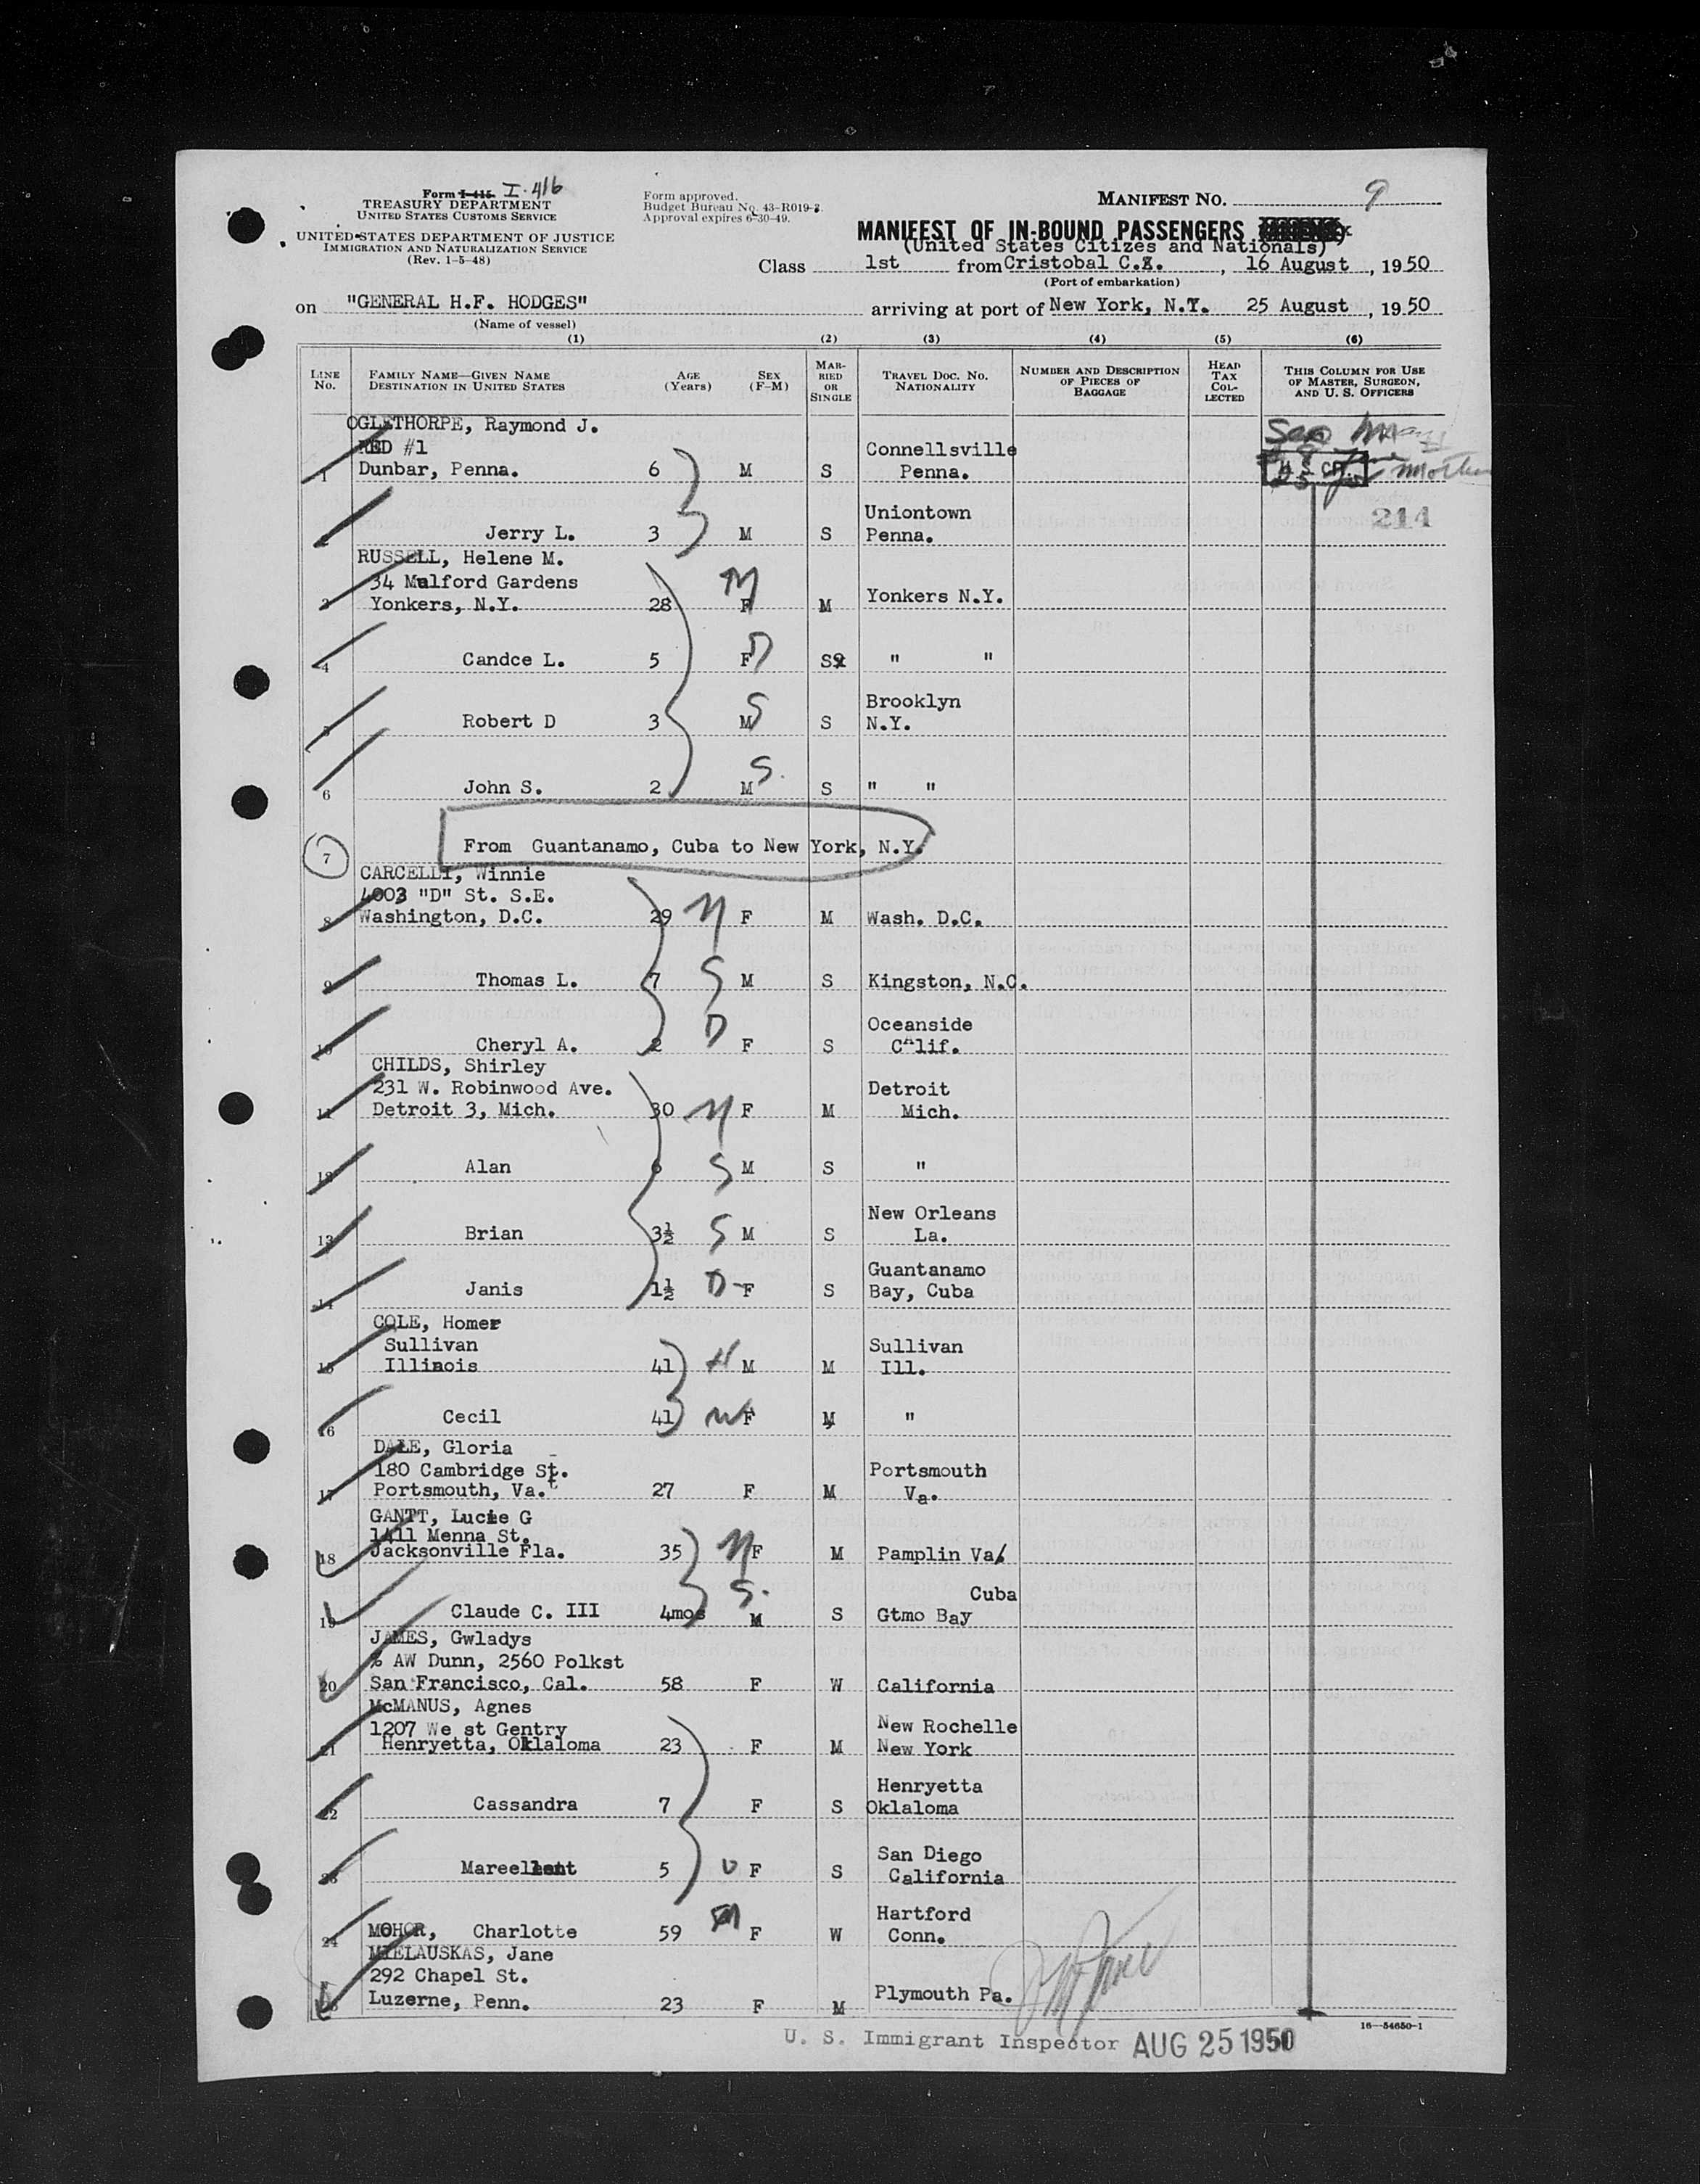 Form I-415 I-416
TREASURY DEPARTMENT
UNITED STATES CUSTOMS SERVICE
UNITED STATES DEPARTMENT OF JUSTICE
IMMIGRATION AND NATURALIZATION SERVICE
(Rev. 1-5-48)
Form approved.
Budget Bureau No. 43-R019-
Approval expires 6-30-49.
MANIFEST NO. 9
MANIFEST OF IN-BOUND PASSENGERS
(United States Citizes and Nationals)
Class 1st from Cristobal C.Z. , 16 August , 1950
(Port of embarkation)
on "GENERAL H.F. HODGES" arriving at port of New York, N.Y. 25 August , 1950
(Name of vessel)
(1) (2) (3) (4) (5) (6)
LINE No. FAMILY NAME—GIVEN NAME DESTINATION IN UNITED STATES AGE (Years) SEX (F-M) MARRIED OR SINGLE TRAVEL DOC. NO. NATIONALITY NUMBER AND DESCRIPTION OF PIECES OF BAGGAGE HEAD TAX COLLECTED THIS COLUMN FOR USE OF MASTER, SURGEON, AND U. S. OFFICERS
OGLETHORPE, Raymond J.
RED #1 Connellsville
1 Dunbar, Penna. 6 M S Penna. U S CIT. Mother
Uniontown 214
2 Jerry L. 3 M S Penna.
RUSSELL, Helene M.
34 Mulford Gardens M
3 Yonkers, N.Y. 28 F M Yonkers N.Y.
4 Candce L. 5 F D S " "
Brooklyn
5 Robert D 3 M S S N.Y.
6 John S. 2 M S. S " "
7 From Guantanamo, Cuba to New York, N.Y.
CARCELLI, Winnie
4003 "D" St. S.E.
8 Washington, D.C. 29 M F M Wash. D.C.
9 Thomas L. 7 S M S Kingston, N.C.
Oceanside
10 Cheryl A. 2 D F S Calif.
CHILDS, Shirley
231 W. Robinwood Ave. Detroit
11 Detroit 3, Mich. 30 M F M Mich.
12 Alan 6 S M S "
New Orleans
13 Brian 3½ S M S La.
Guantanamo
14 Janis 1½ D F S Bay, Cuba
COLE, Homer
Sullivan Sullivan
15 Illinois 41 H M M Ill.
16 Cecil 41 W F M "
DALE, Gloria
180 Cambridge St. Portsmouth
17 Portsmouth, Va. 27 F M Va.
GANTT, Lucie G
1411 Menna St.
18 Jacksonville Fla. 35 M F M Pamplin Va.
S. Cuba
19 Claude C. III 4mos M S Gtmo Bay
JAMES, Gwladys
% AW Dunn, 2560 Polkst
20 San Francisco, Cal. 58 F W California
McMANUS, Agnes
1207 We st Gentry New Rochelle
21 Henryetta, Oklaloma 23 F M New York
Henryetta
22 Cassandra 7 F S Oklaloma
San Diego
23 5 F S California
Hartford
24 MOHOR, Charlotte 59 F W Conn.
MIELAUSKAS, Jane
292 Chapel St.
25 Luzerne, Penn. 23 F M Plymouth Pa.
16—54650-1
U. S. Immigrant Inspector AUG 25 1950